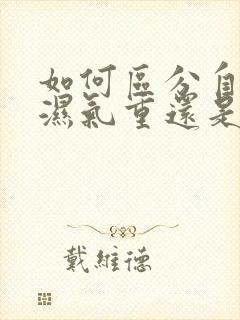 如何區分自
濕氣重還是
戴維德